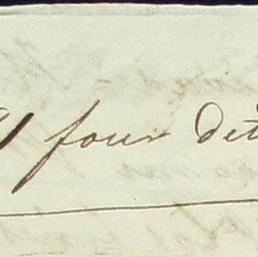 four dit